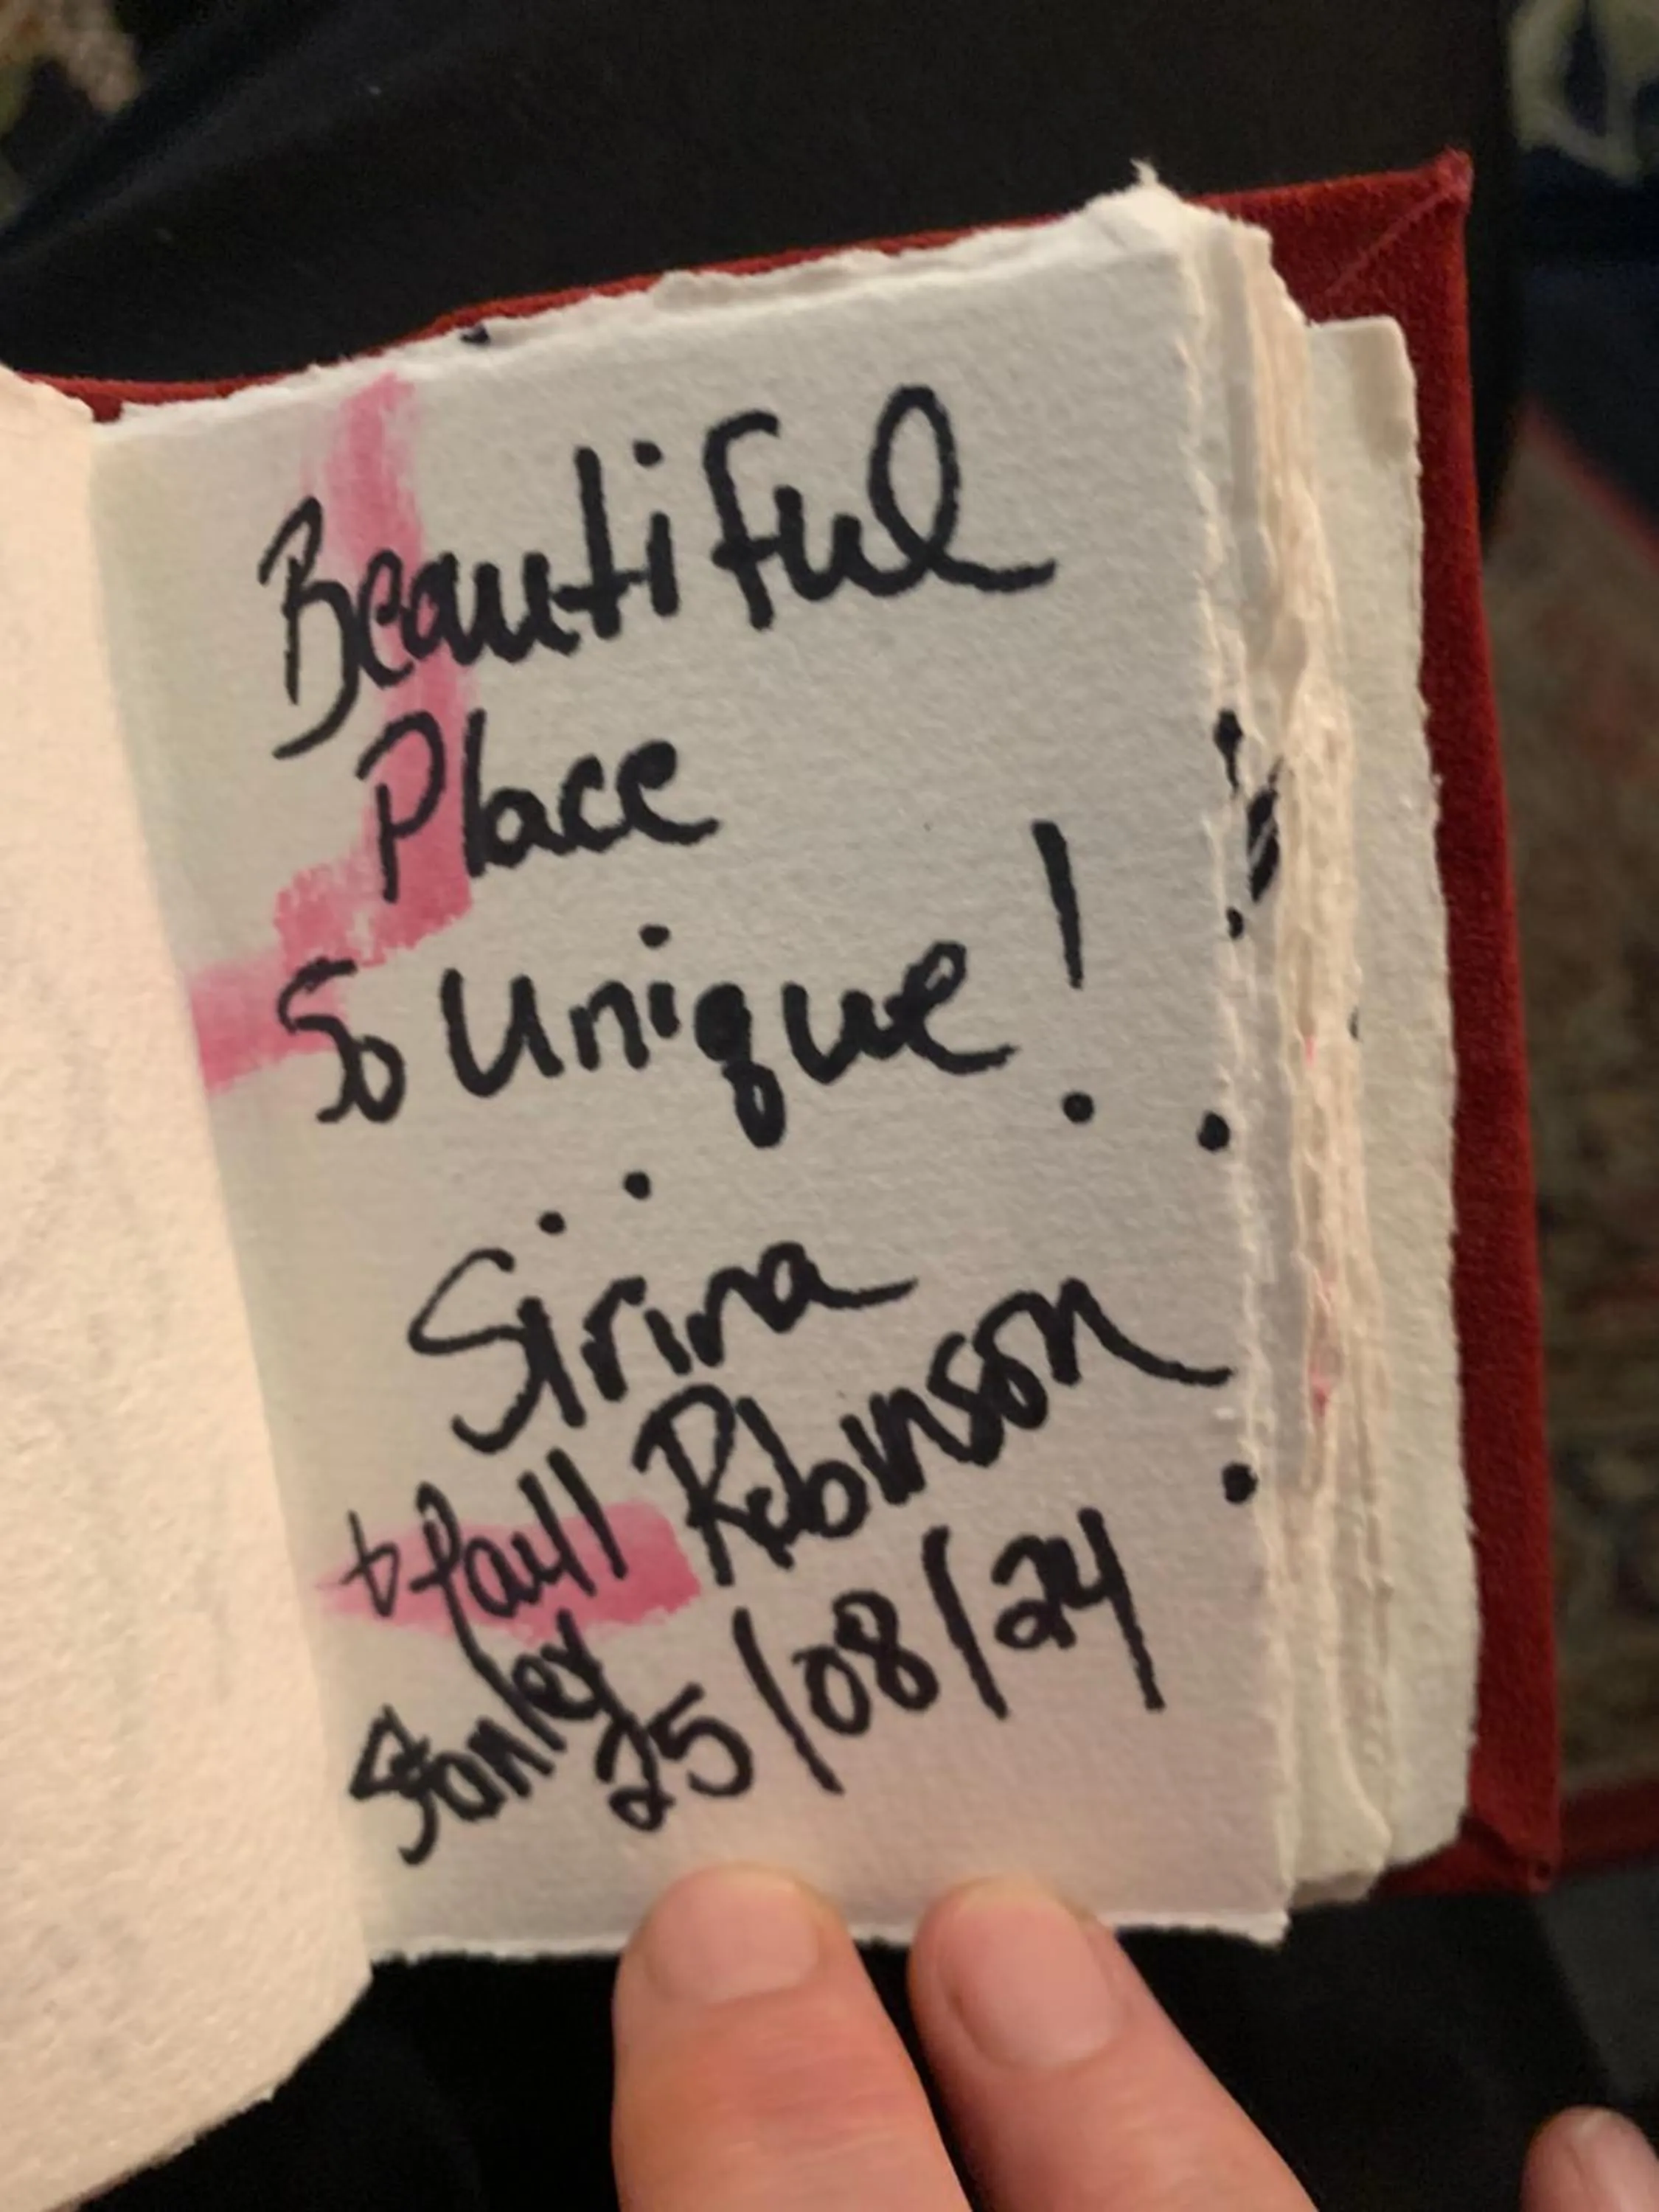 Beautiful
Place
So Unique!
Sirina
+ Paul Robinson
Stanley
25/08/24